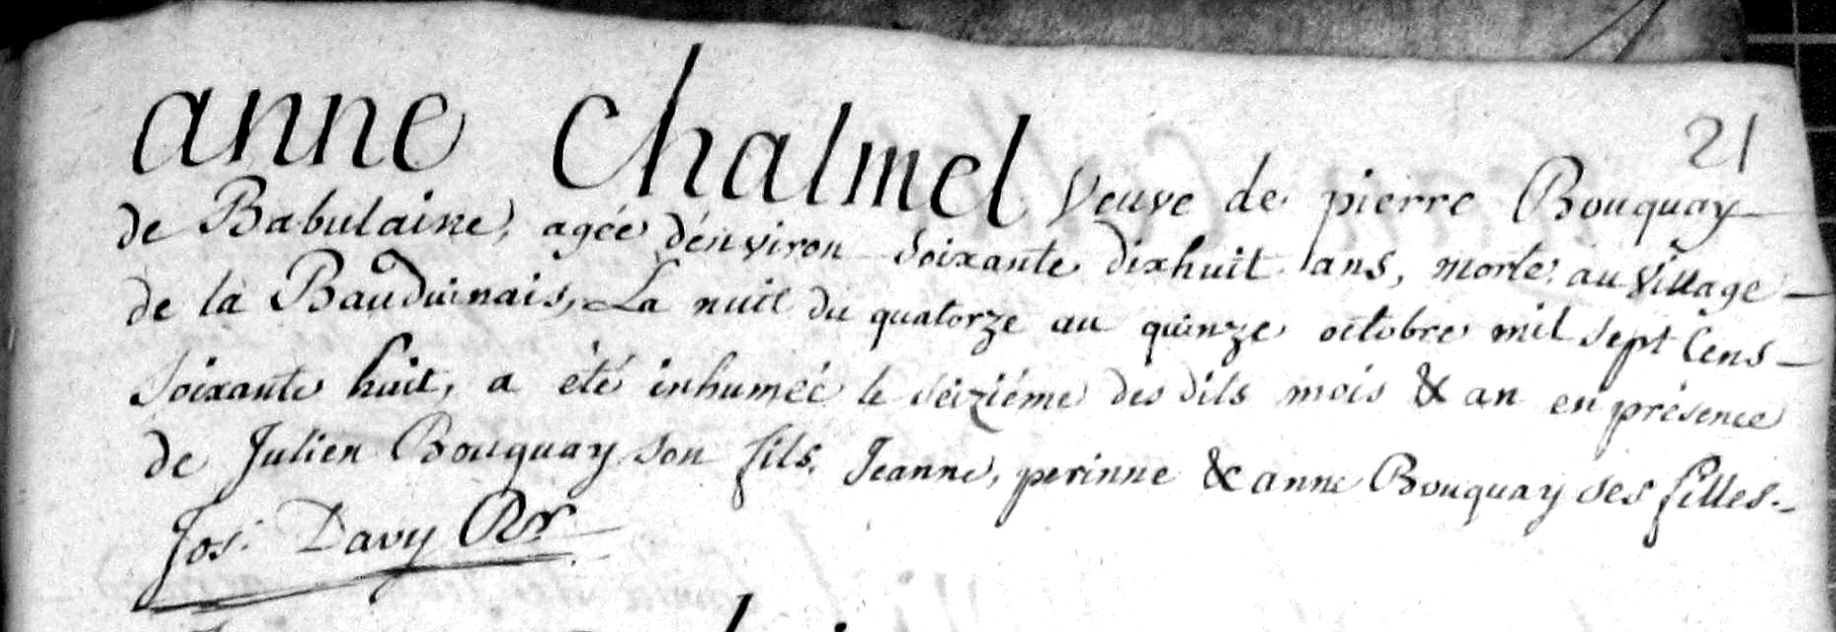 21
anne Chalmel veuve de pierre Bouquay
de Babulaine, agée d'environ soixante dixhuit ans, morte au village
de la Bauduinais, La nuit du quatorze au quinze octobre mil sept cens
soixante huit, a été inhumée le seiziéme des dits mois & an en présence
de Julien Bouquay son fils, Jeanne, perinne & anne Bouquay ses filles.
Jos. Davy Rr